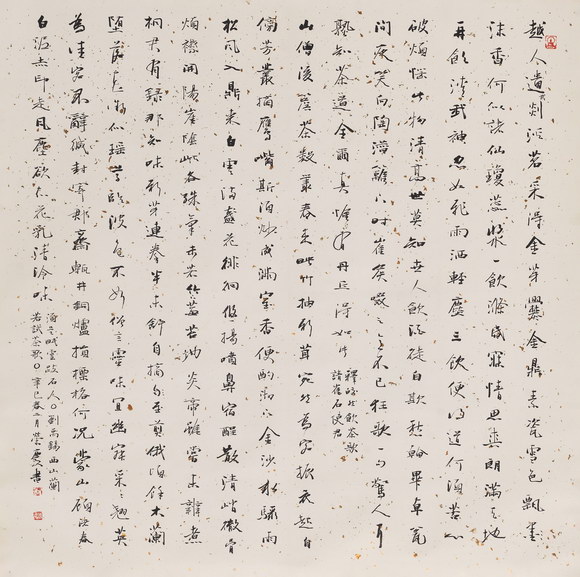 越人遺剡溪茗采得金芽爨金鼎素瓷雪色飄
沫香何似諸仙瓊蕊漿一飲滌昏寐情思爽朗滿天地
再飲清我神忽如飛雨灑輕塵三飲便得道何須苦心
破煩惱此物清高世莫知世人飲酒徒自欺愁看畢卓瓮
間夜笑向陶潛籬下時崔侯啜之意不已狂歌一句驚人耳
孰知茶道全爾真惟有丹丘得如此
釋皎然飲茶歌
誚崔石使君
山僧後簷茶數叢春來映竹抽新茸宛然為客振衣起自
傍芳叢摘鷹嘴斯須炒成滿室香便酌砌下金沙水驟雨
松風入鼎來白雲滿盞花徘徊悠揚噴鼻宿酲散清峭徹骨
煩襟開陽崖陰嶺各殊氣未若竹下莓苔地炎帝雖嘗未辨煮
桐君有籙那知味新芽連拳半未舒自摘至煎俄頃餘木蘭
墮露香微似瑤草臨波色不如僧言靈味宜幽寂采采翹英
為佳客不辭緘封寄郡齋甎井銅爐損標格何況蒙山顧渚春
白泥赤印走風塵欲知花乳清冷味
須是眠雲跂石人〇劉禹錫西山蘭
若試茶歌〇辛巳春二月榮慶書